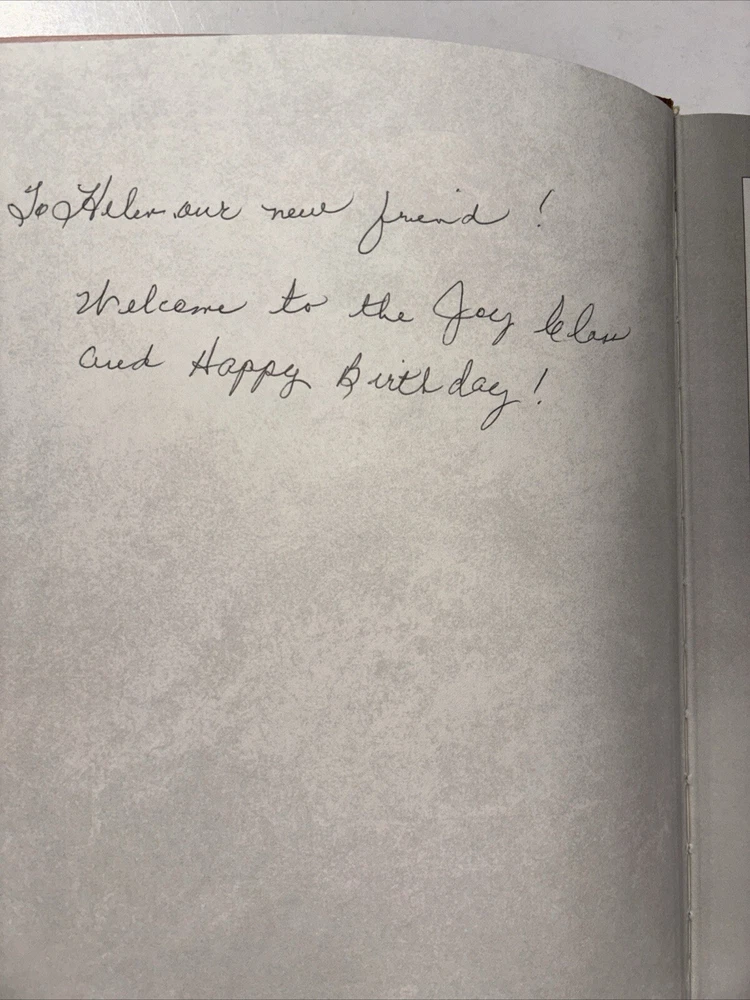 To Helen our new friend!
Welcome to the Joy Class
and Happy Birthday!